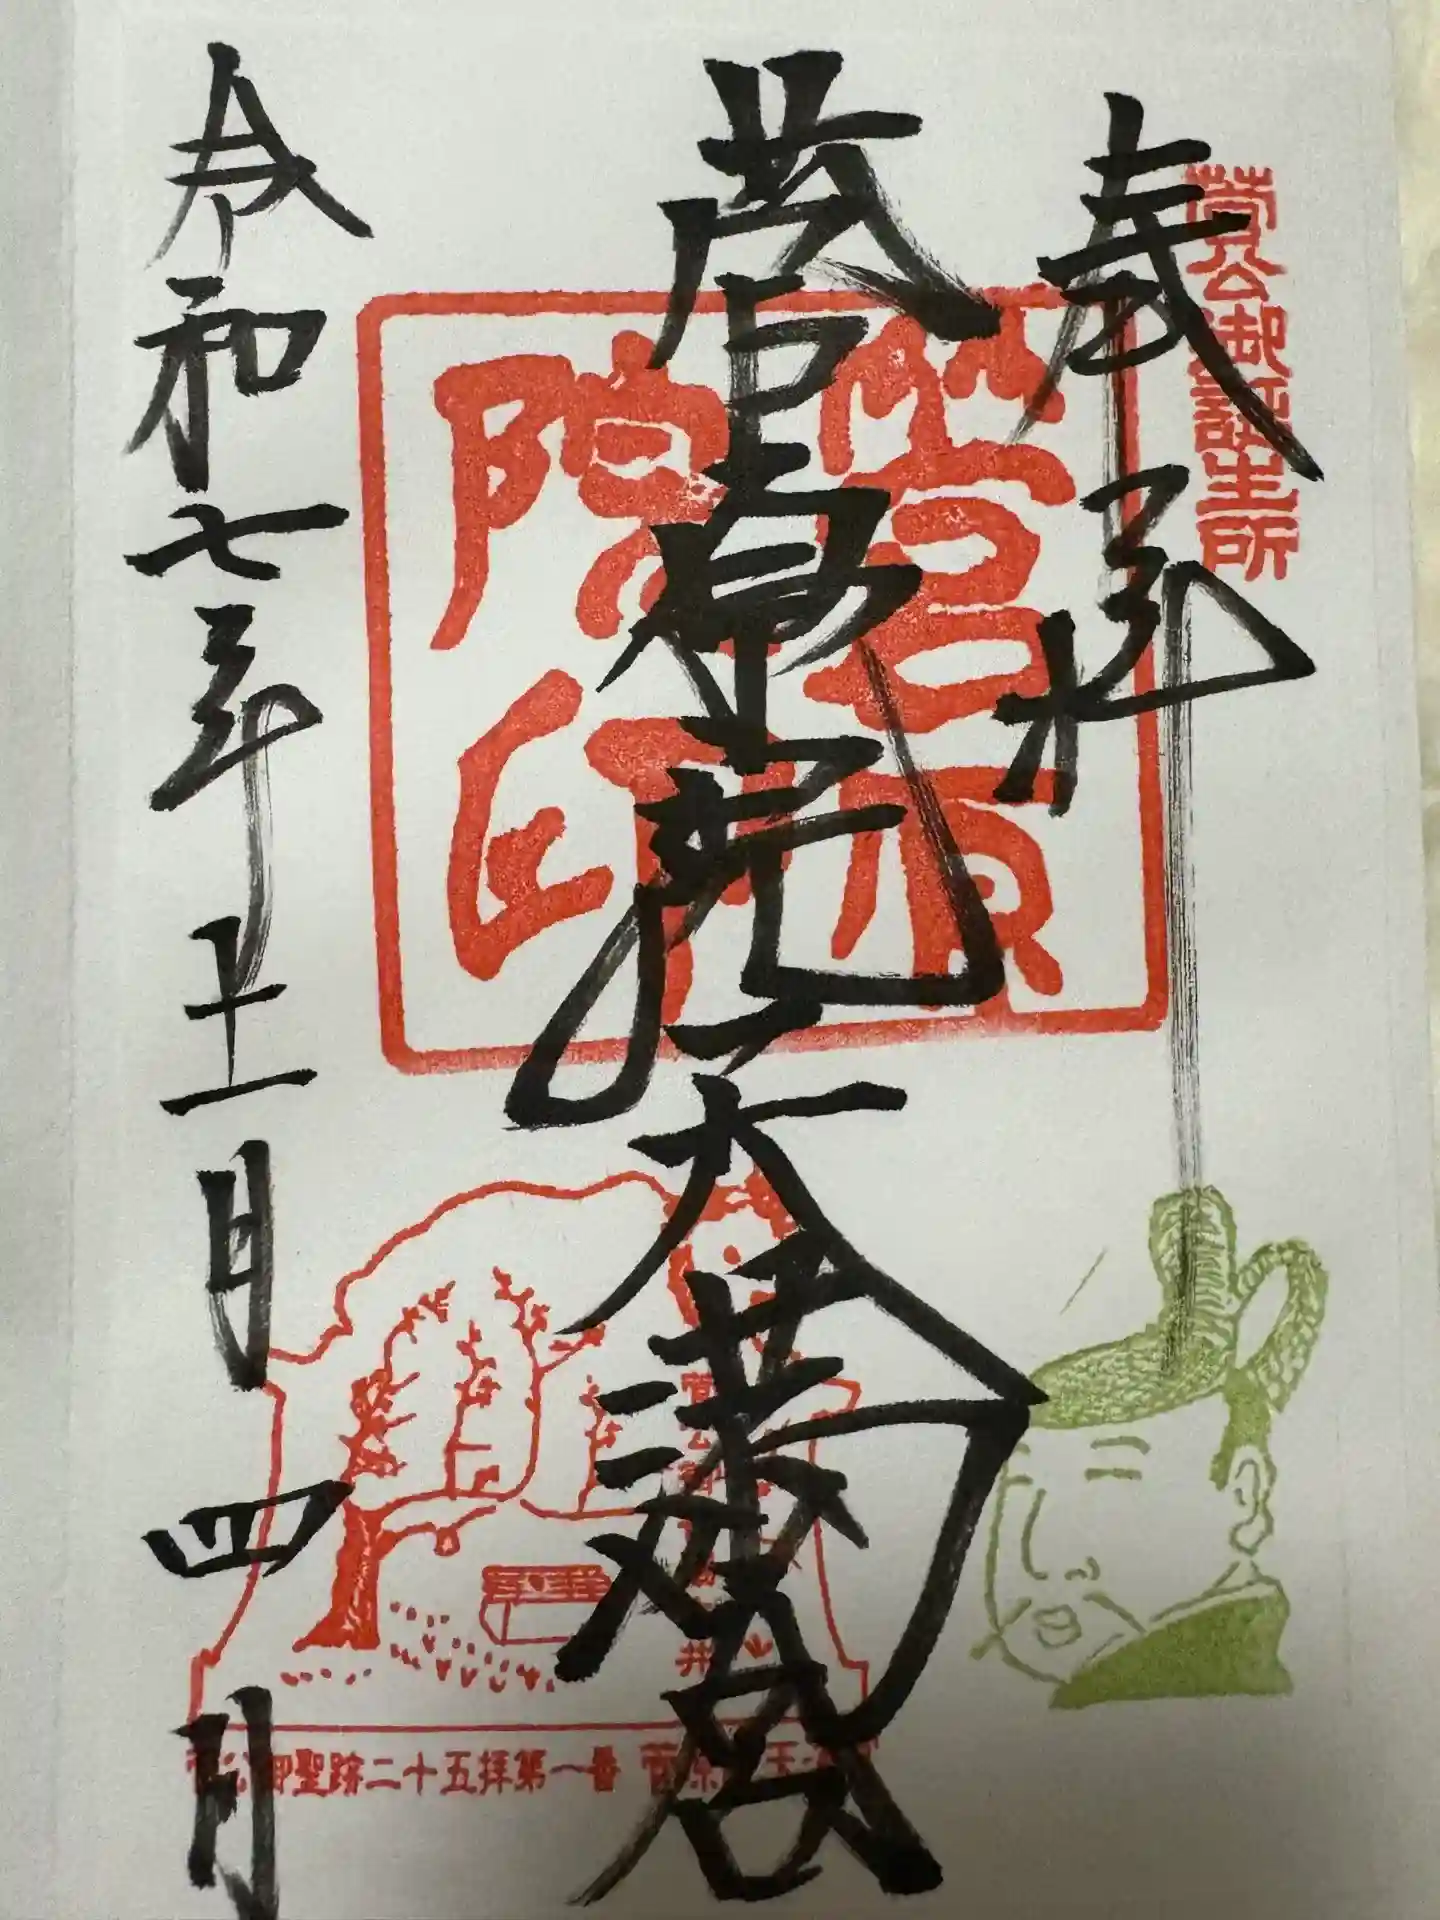 菅公御誕生所
奉拝
菅原院天満宮
菅原
院印
菅公御聖跡二十五拝第一番 菅原
令和七年十一月四日